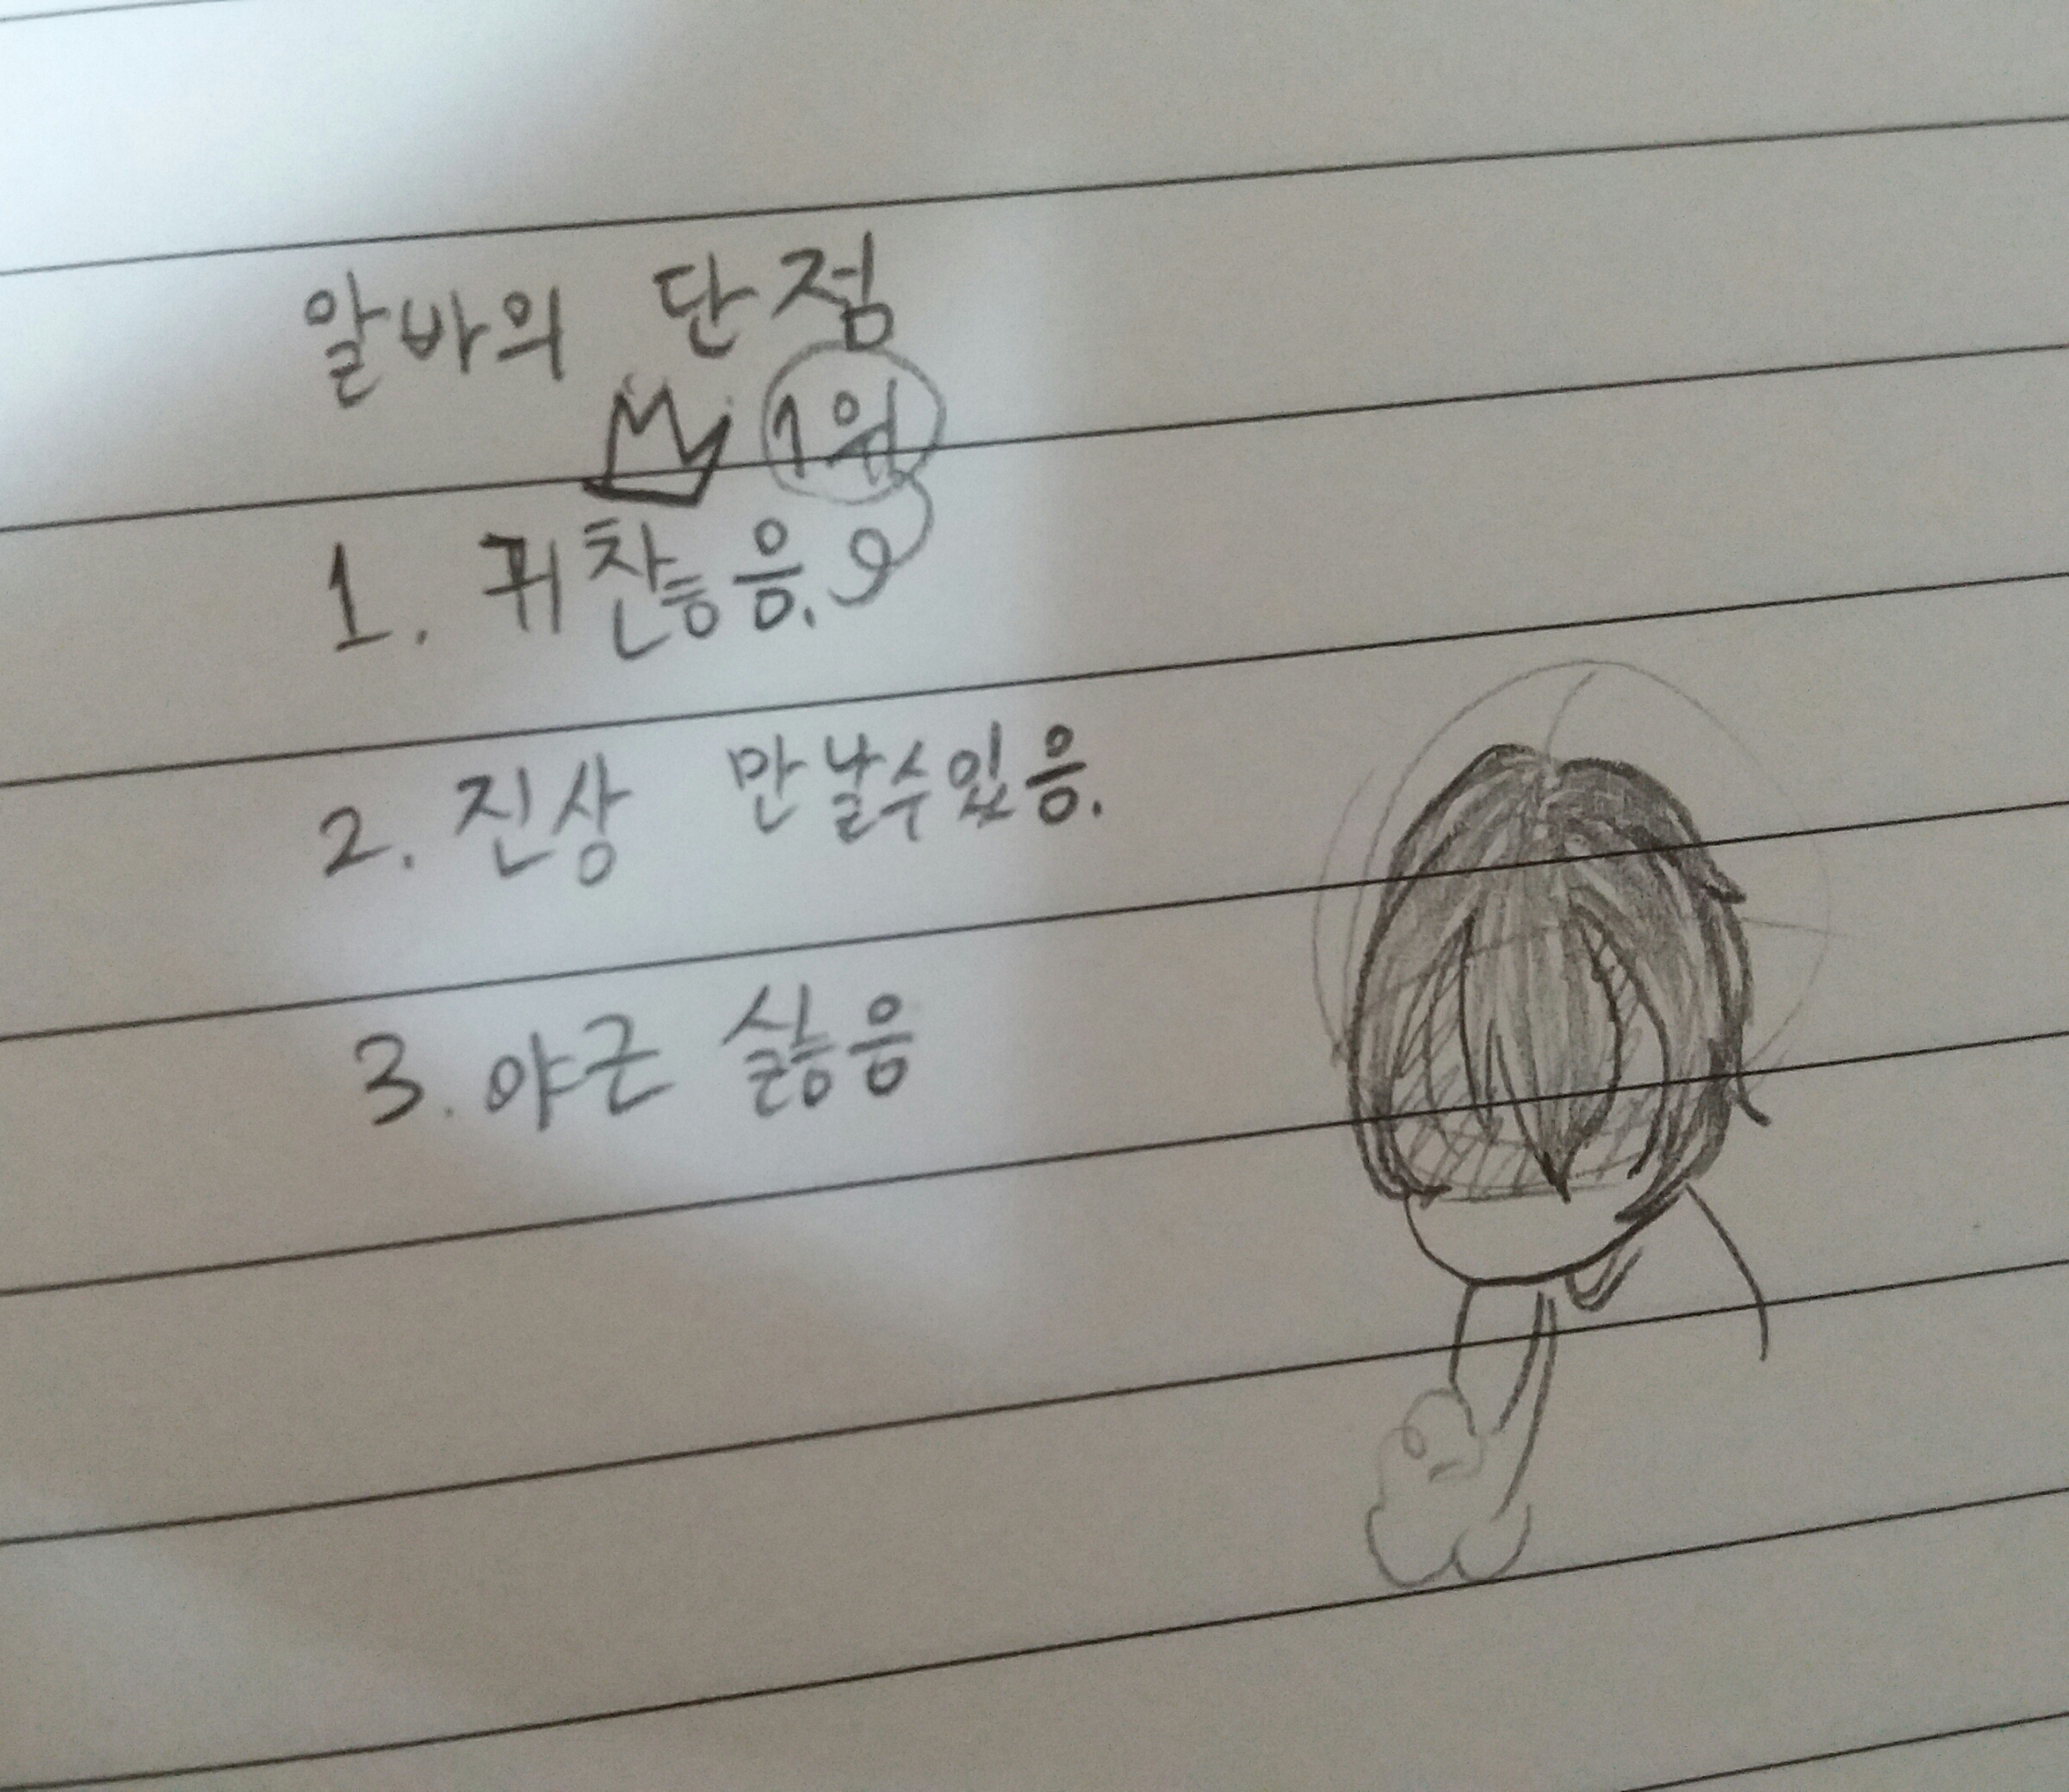 알바의 단점
1위
1. 귀찮음.
2. 진상 만날수있음.
3. 야근 싫음